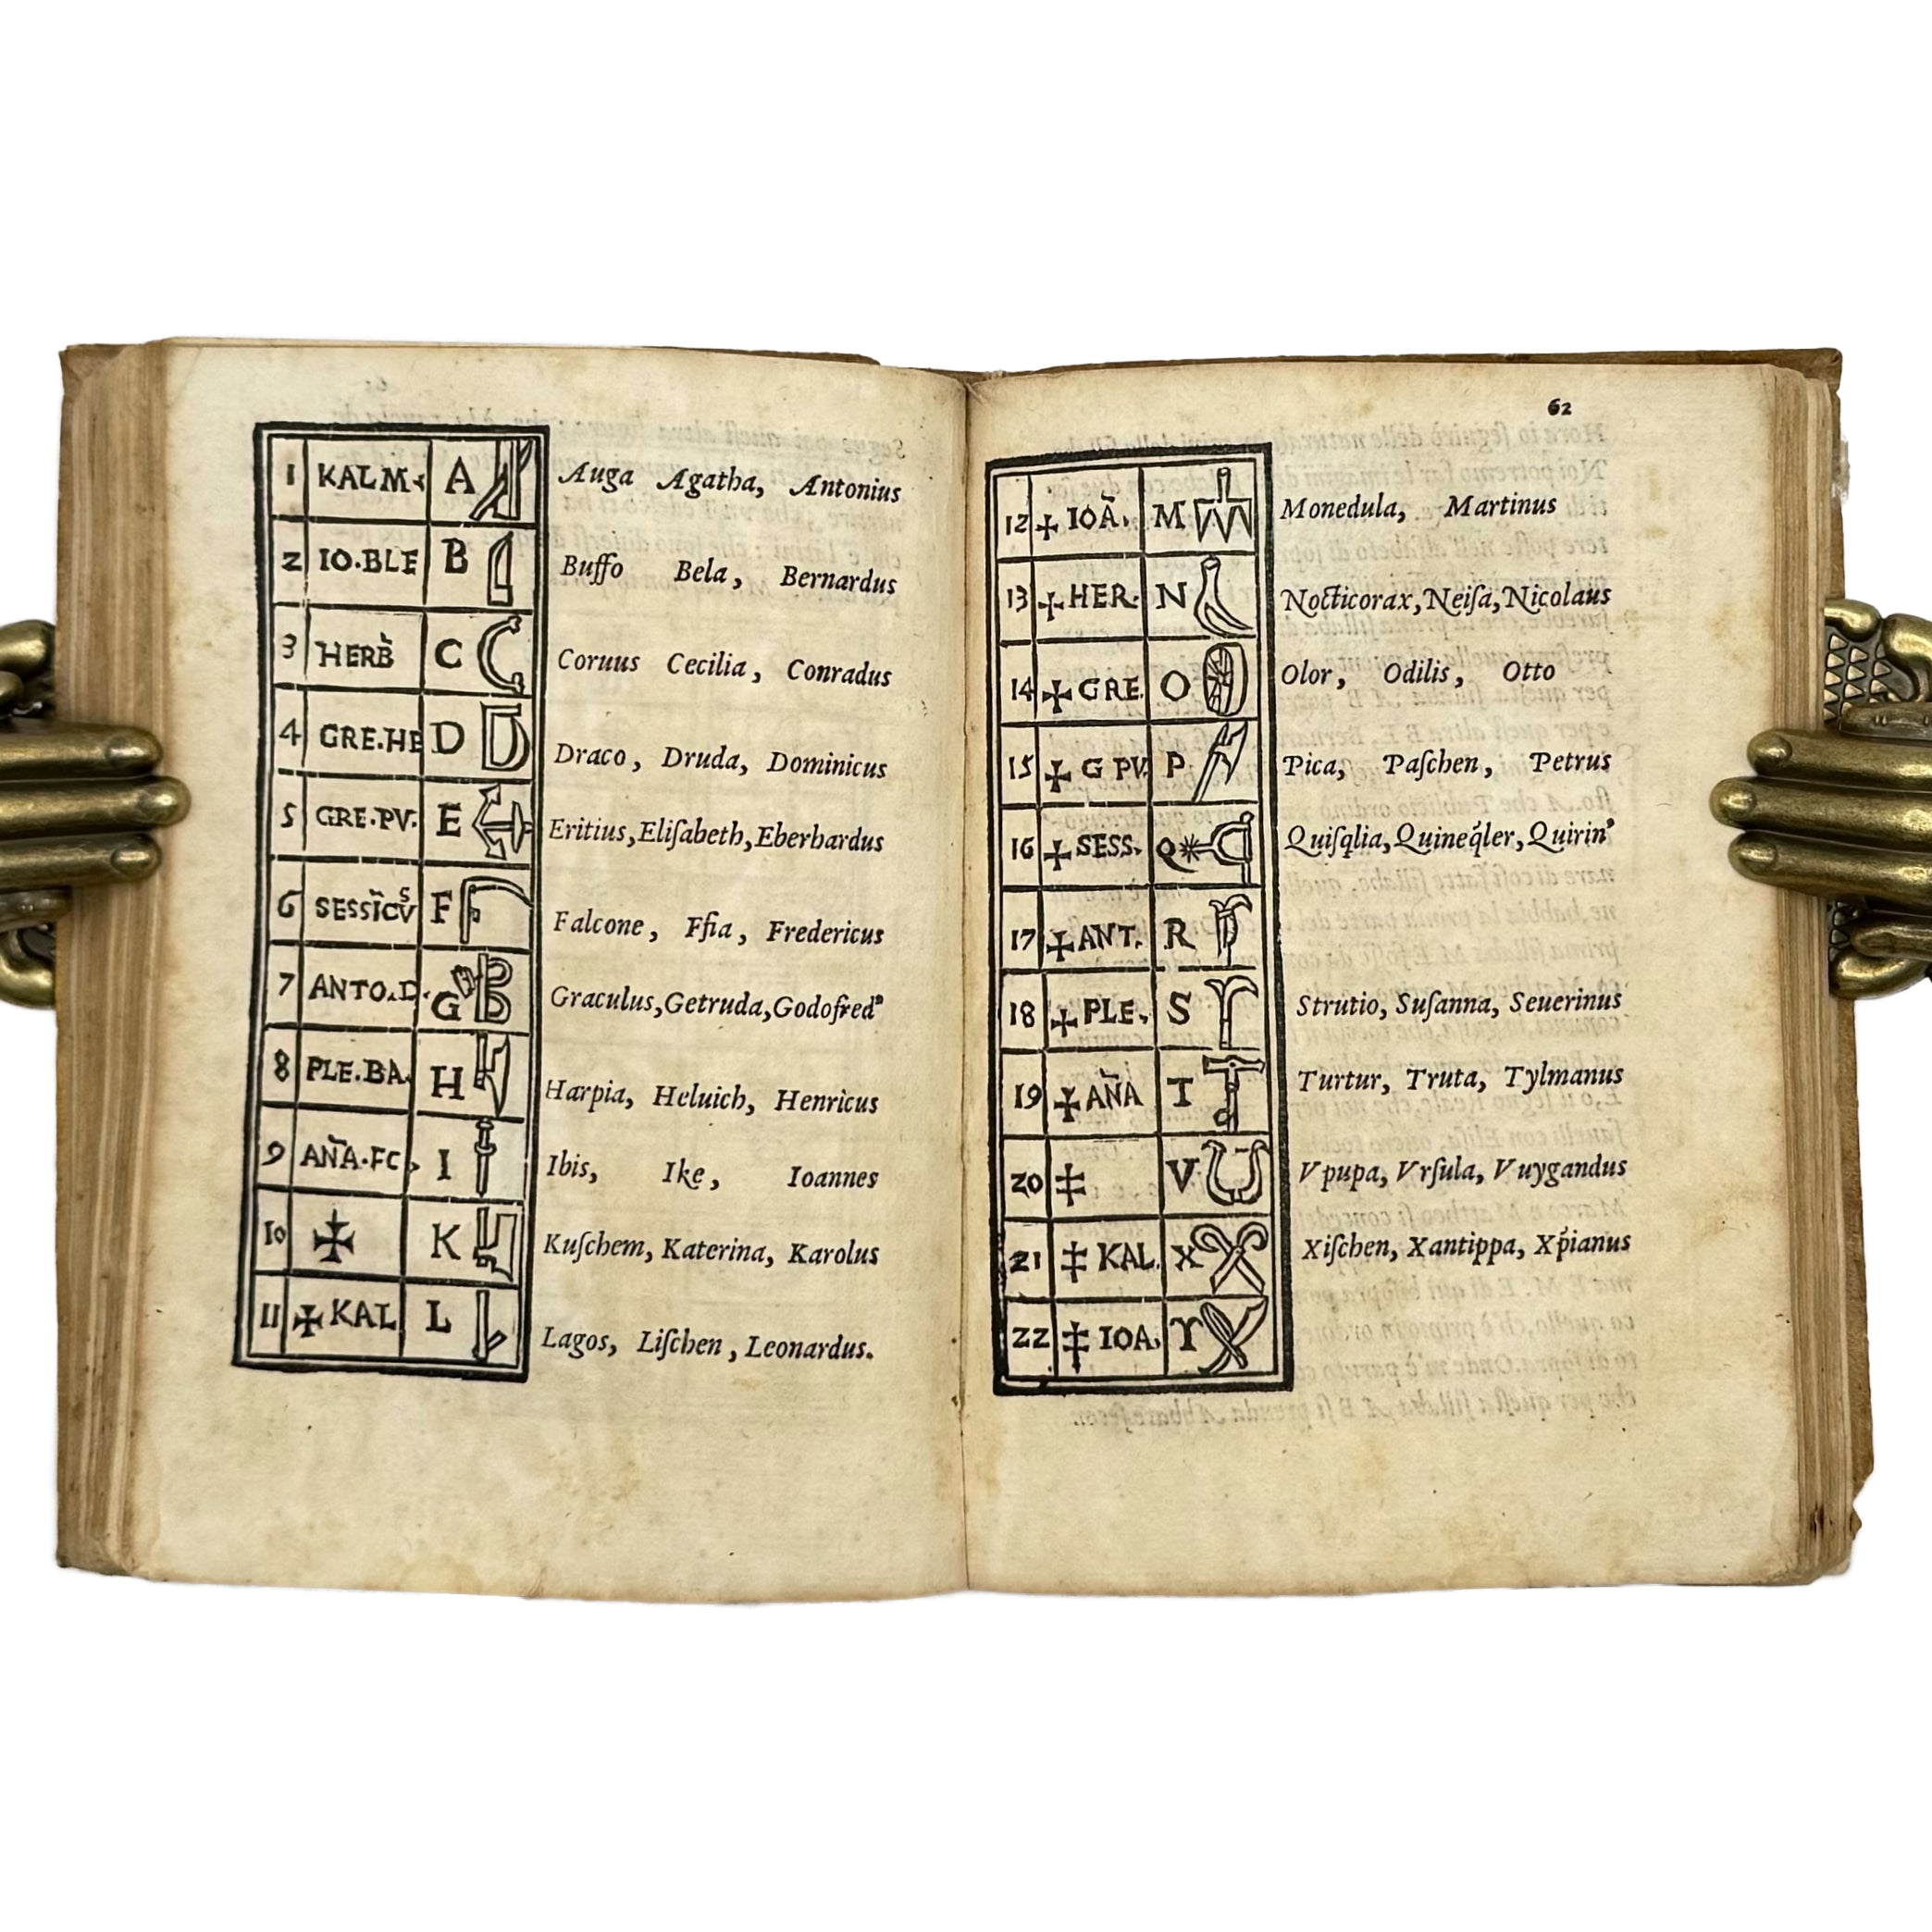 1 KALM A Auga Agatha, Antonius
2 IO·BLE B Buffo Bela, Bernardus
3 HERB̃ C Coruus Cecilia, Conradus
4 GRE·HE D Draco, Druda, Dominicus
5 GRE·PV· E Eritius, Eliſabeth, Eberhardus
6 F Falcone, Fredericus
7 ANTO.D. G Graculus, Getruda, Godofred⁹
8 PLE.BA. H Harpia, Heluich, Henricus
9 AÑA·FC I Ibis, Ike, Ioannes
10 ✠ K Kuſchem, Katerina, Karolus
11 ✠ KAL L Lagos, Liſchen, Leonardus.
62
12 ✠ IOÃ. M Monedula, Martinus
13 ✠ HER· N Nocticorax, Neiſa, Nicolaus
14 ✠ GRE. O Olor, Odilis, Otto
15 ✠ G PV. P Pica, Paſchen, Petrus
16 ✠ SESS. Q Quiſqlia, Quineq̃ler, Quirin⁹
17 ✠ ANT. R
18 ✠ PLE. S Strutio, Suſanna, Seuerinus
19 ✠ AÑA T Turtur, Truta, Tylmanus
20 ‡ V Vpupa, Vrſula, Vuygandus
21 ‡ KAL. X Xiſchen, Xantippa, Xp̃ianus
22 ‡ IOA. Y